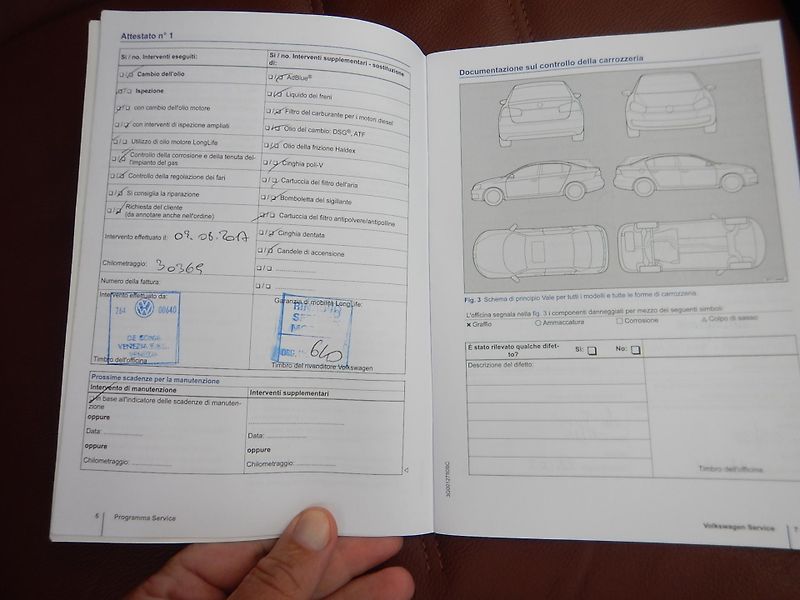 Attestato n° 1
Sì / no. Interventi eseguiti:
Cambio dell'olio
Ispezione
con cambio dell'olio motore
con interventi di ispezione ampliati
Utilizzo di olio motore LongLife
Controllo della corrosione e della tenuta del-
l'impianto del gas
Controllo della regolazione dei fari
Si consiglia la riparazione
Richiesta del cliente
(da annotare anche nell'ordine)
Intervento effettuato il:
Chilometraggio: 30369
Numero della fattura:
Intervento effettuato da:
264 00640
VENEZIA
Timbro dell'officina
Sì / no. Interventi supplementari - sostituzione
di:
AdBlue®
Liquido dei freni
Filtro del carburante per i motori diesel
Olio del cambio: DSG®, ATF
Olio della frizione Haldex
Cinghia poli-V
Cartuccia del filtro dell'aria
Bomboletta del sigillante
Cartuccia del filtro antipolvere/antipolline
Cinghia dentata
Candele di accensione
Garanzia di mobilità LongLife:
640
Timbro del rivenditore Volkswagen
Prossime scadenze per la manutenzione
Intervento di manutenzione
In base all'indicatore delle scadenze di manuten-
zione
oppure
Data:
oppure
Chilometraggio:
Interventi supplementari
Data:
oppure
Chilometraggio:
6 Programma Service
Documentazione sul controllo della carrozzeria
Fig. 3 Schema di principio Vale per tutti i modelli e tutte le forme di carrozzeria.
L'officina segnala nella fig. 3 i componenti danneggiati per mezzo dei seguenti simboli:
× Graffio ○ Ammaccatura □ Corrosione △ Colpo di sasso
È stato rilevato qualche difet-
to? Sì: No:
Descrizione del difetto:
Timbro dell'officina
3G0012716DSC
Volkswagen Service 7